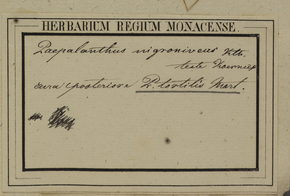 HERBARIUM REGIUM MONACENSE.
Paepalanthus nigroniveus Kth.
teste Koernicke
cura posteriore P. tortilis Mart.